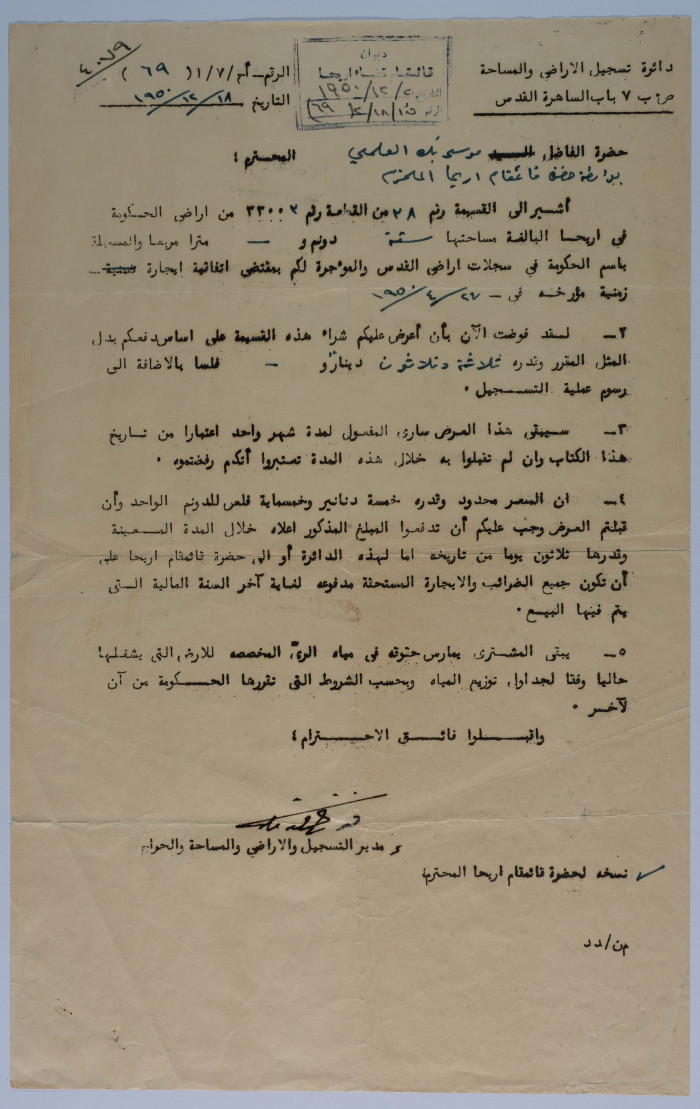 دائرة تسجيل الاراضي والمساحة
ص.ب ٧ باب الساهرة القدس
الرقم ــ أر/١/٧ ( ٦٩ )
التاريخ ١٩٥٠/١٢/١٨
٤٠٧٩
ديوان
قائمقامية اريحا
١٩٥٠/١٢/٢٠
حضرة الفاضل السيد موسى بك العلمي المحترم ؛
بواسطة حضرة قائمقام اريحا المحترم
أشير الى القسيمة رقم ٣٨ من القطعة رقم ٣٣٠٠٣ من اراضي الحكومة
في اريحا البالغة مساحتها ستة دونم و ــ مترا مربعا والمسجلة
باسم الحكومة في سجلات اراضي القدس والمؤجرة لكم بمقتضى اتفاقية ايجارة
زمنية مؤرخه في ــ ١٩٥٠/٤/٢٧
٢ــ لقد فوضت الآن بأن أعرض عليكم شراء هذه القسيمة على اساس دفعكم بدل
المثل المقرر وقدره ثلاثة وثلاثون دينارو ــ فلسا بالاضافة الى
رسوم عملية التسجيل ٠
٣ــ سيبقى هذا العرض سارى المفعول لمدة شهر واحد اعتبارا من تاريخ
هذا الكتاب وان لم تقبلوا به خلال هذه المدة تعتبروا أنكم رفضتموه ٠
٤ــ ان السعر محدود وقدره خمسة دنانير وخمسماية فلس للدونم الواحد وأن
قبلتم العرض وجب عليكم أن تدفعوا المبلغ المذكور اعلاه خلال المدة المعينة
وقدرها ثلاثون يوما من تاريخه اما لهذه الدائرة أو الى حضرة قائمقام اريحا على
أن تكون جميع الضرائب والايجارة المستحقة مدفوعه لغاية آخر السنة المالية التي
يتم فيها البيع ٠
٥ــ يبقى المشترى يمارس حقوقه في مياه الرىّ المخصصه للارض التي يشغلها
حاليا وفقا لجداول توزيع المياه وبحسب الشروط التي تقررها الحكومة من آن
لآخر ٠
واقبلوا فائق الاحترام ؛
مدير التسجيل والاراضي والمساحة والحراج
نسخه لحضرة قائمقام اريحا المحترم ؛
م ن/دد